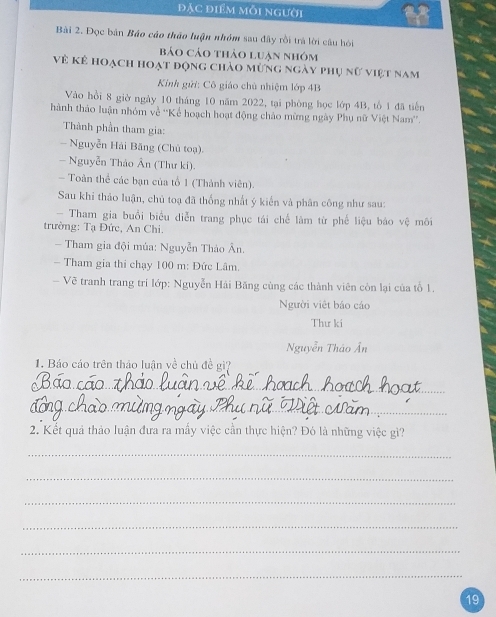 ĐẶC ĐIỂM MỖI NGƯỜI
Bài 2. Đọc bản Báo cáo thảo luận nhóm sau đây rồi trả lời câu hỏi
BÁO CÁO THẢO LUẬN NHÓM
VỀ KẾ HOẠCH HOẠT ĐỘNG CHÀO MỪNG NGÀY PHỤ NỮ VIỆT NAM
Kính gửi: Cô giáo chủ nhiệm lớp 4B
Vào hồi 8 giờ ngày 10 tháng 10 năm 2022, tại phòng học lớp 4B, tổ 1 đã tiến
hành thảo luận nhóm về "Kế hoạch hoạt động chào mừng ngày Phụ nữ Việt Nam".
Thành phần tham gia:
– Nguyễn Hải Băng (Chủ toạ).
– Nguyễn Thảo Ân (Thư kí).
– Toàn thể các bạn của tổ 1 (Thành viên).
Sau khi thảo luận, chủ toạ đã thống nhất ý kiến và phân công như sau:
– Tham gia buổi biểu diễn trang phục tái chế làm từ phế liệu bảo vệ môi
trường: Tạ Đức, An Chi.
– Tham gia đội múa: Nguyễn Thảo Ân.
– Tham gia thi chạy 100 m: Đức Lâm.
– Vẽ tranh trang trí lớp: Nguyễn Hải Băng cùng các thành viên còn lại của tổ 1.
Người viết báo cáo
Thư kí
Nguyễn Thảo Ân
1. Báo cáo trên thảo luận về chủ đề gì?
Báo cáo thảo luận về kế hoạch hoạch hoạt
động chào mừng ngày Phụ nữ Việt Năm
2. Kết quả thảo luận đưa ra mấy việc cần thực hiện? Đó là những việc gì?
19